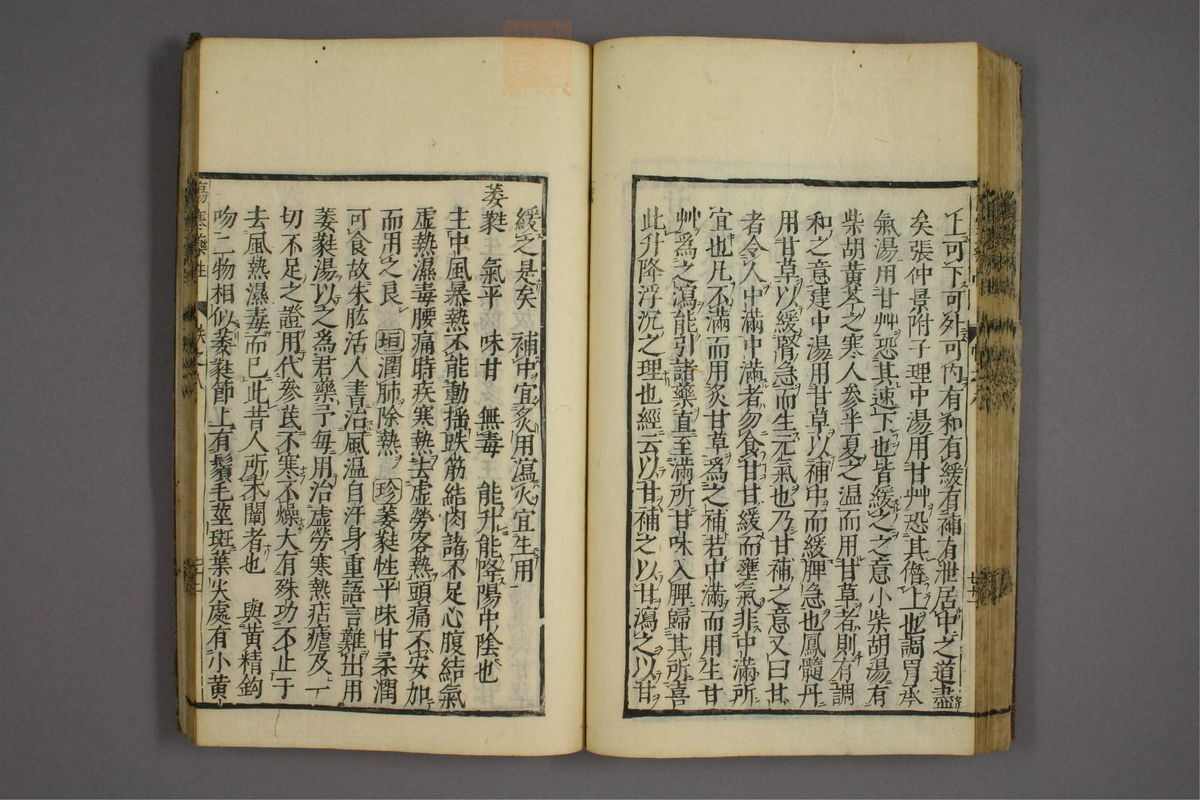 上可下可外可內有和有緩有補有泄居中之道盡
矣張仲景附子理中湯用甘艸恐其僭上也調胃承
氣湯用甘艸恐其速下也皆緩之之意小柴胡湯有
柴胡黃芩之寒人參半夏之溫而用甘草者則有調
和之意建中湯用甘草以補中而緩脾急也鳳髓丹
用甘草以緩腎急而生元氣也乃甘補之意又曰甘
者令人中滿中滿者勿食甘甘緩而壅氣非中滿所
宜也凡不滿而用炙甘草爲之補若中滿而用生甘
艸爲之瀉能引諸藥直至滿所甘味入脾歸其所喜
此升降浮沉之理也經云以甘補之以甘瀉之以甘
緩之是矣 補中宜炙用瀉火宜生用
萎蕤 氣平 味甘 無毒 能升能降陽中陰也
主中風暴熱不能動揺跌筋結肉諸不足心腹結氣
虛熱濕毒腰痛時疾寒熱生虛勞客熱頭痛不安加
而用之良 垣潤肺除熱 珍萎蕤性平味甘柔潤
可食故朱肱活人書治風温自汗身重語言難出用
萎蕤湯以之為君藥予每用治虛勞寒熱痁瘧及一
切不足之證用代參芪不寒不燥大有殊功不止于
去風熱濕毒而已此昔人所未闡者也 與黃精鈎
吻二物相似萎蕤節上有鬚毛莖斑葉尖處有小黃
傷寒藥性